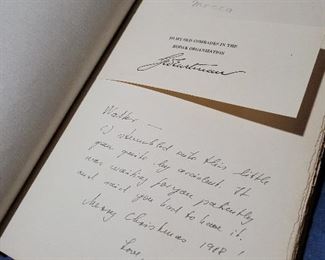 TO MY OLD COMRADES IN THE
KODAK ORGANIZATION
Walter —
I stumbled onto this little
gem quite by accident. It
was waiting for you patiently
and said you had to have it.
Merry Christmas 1988!
Love,